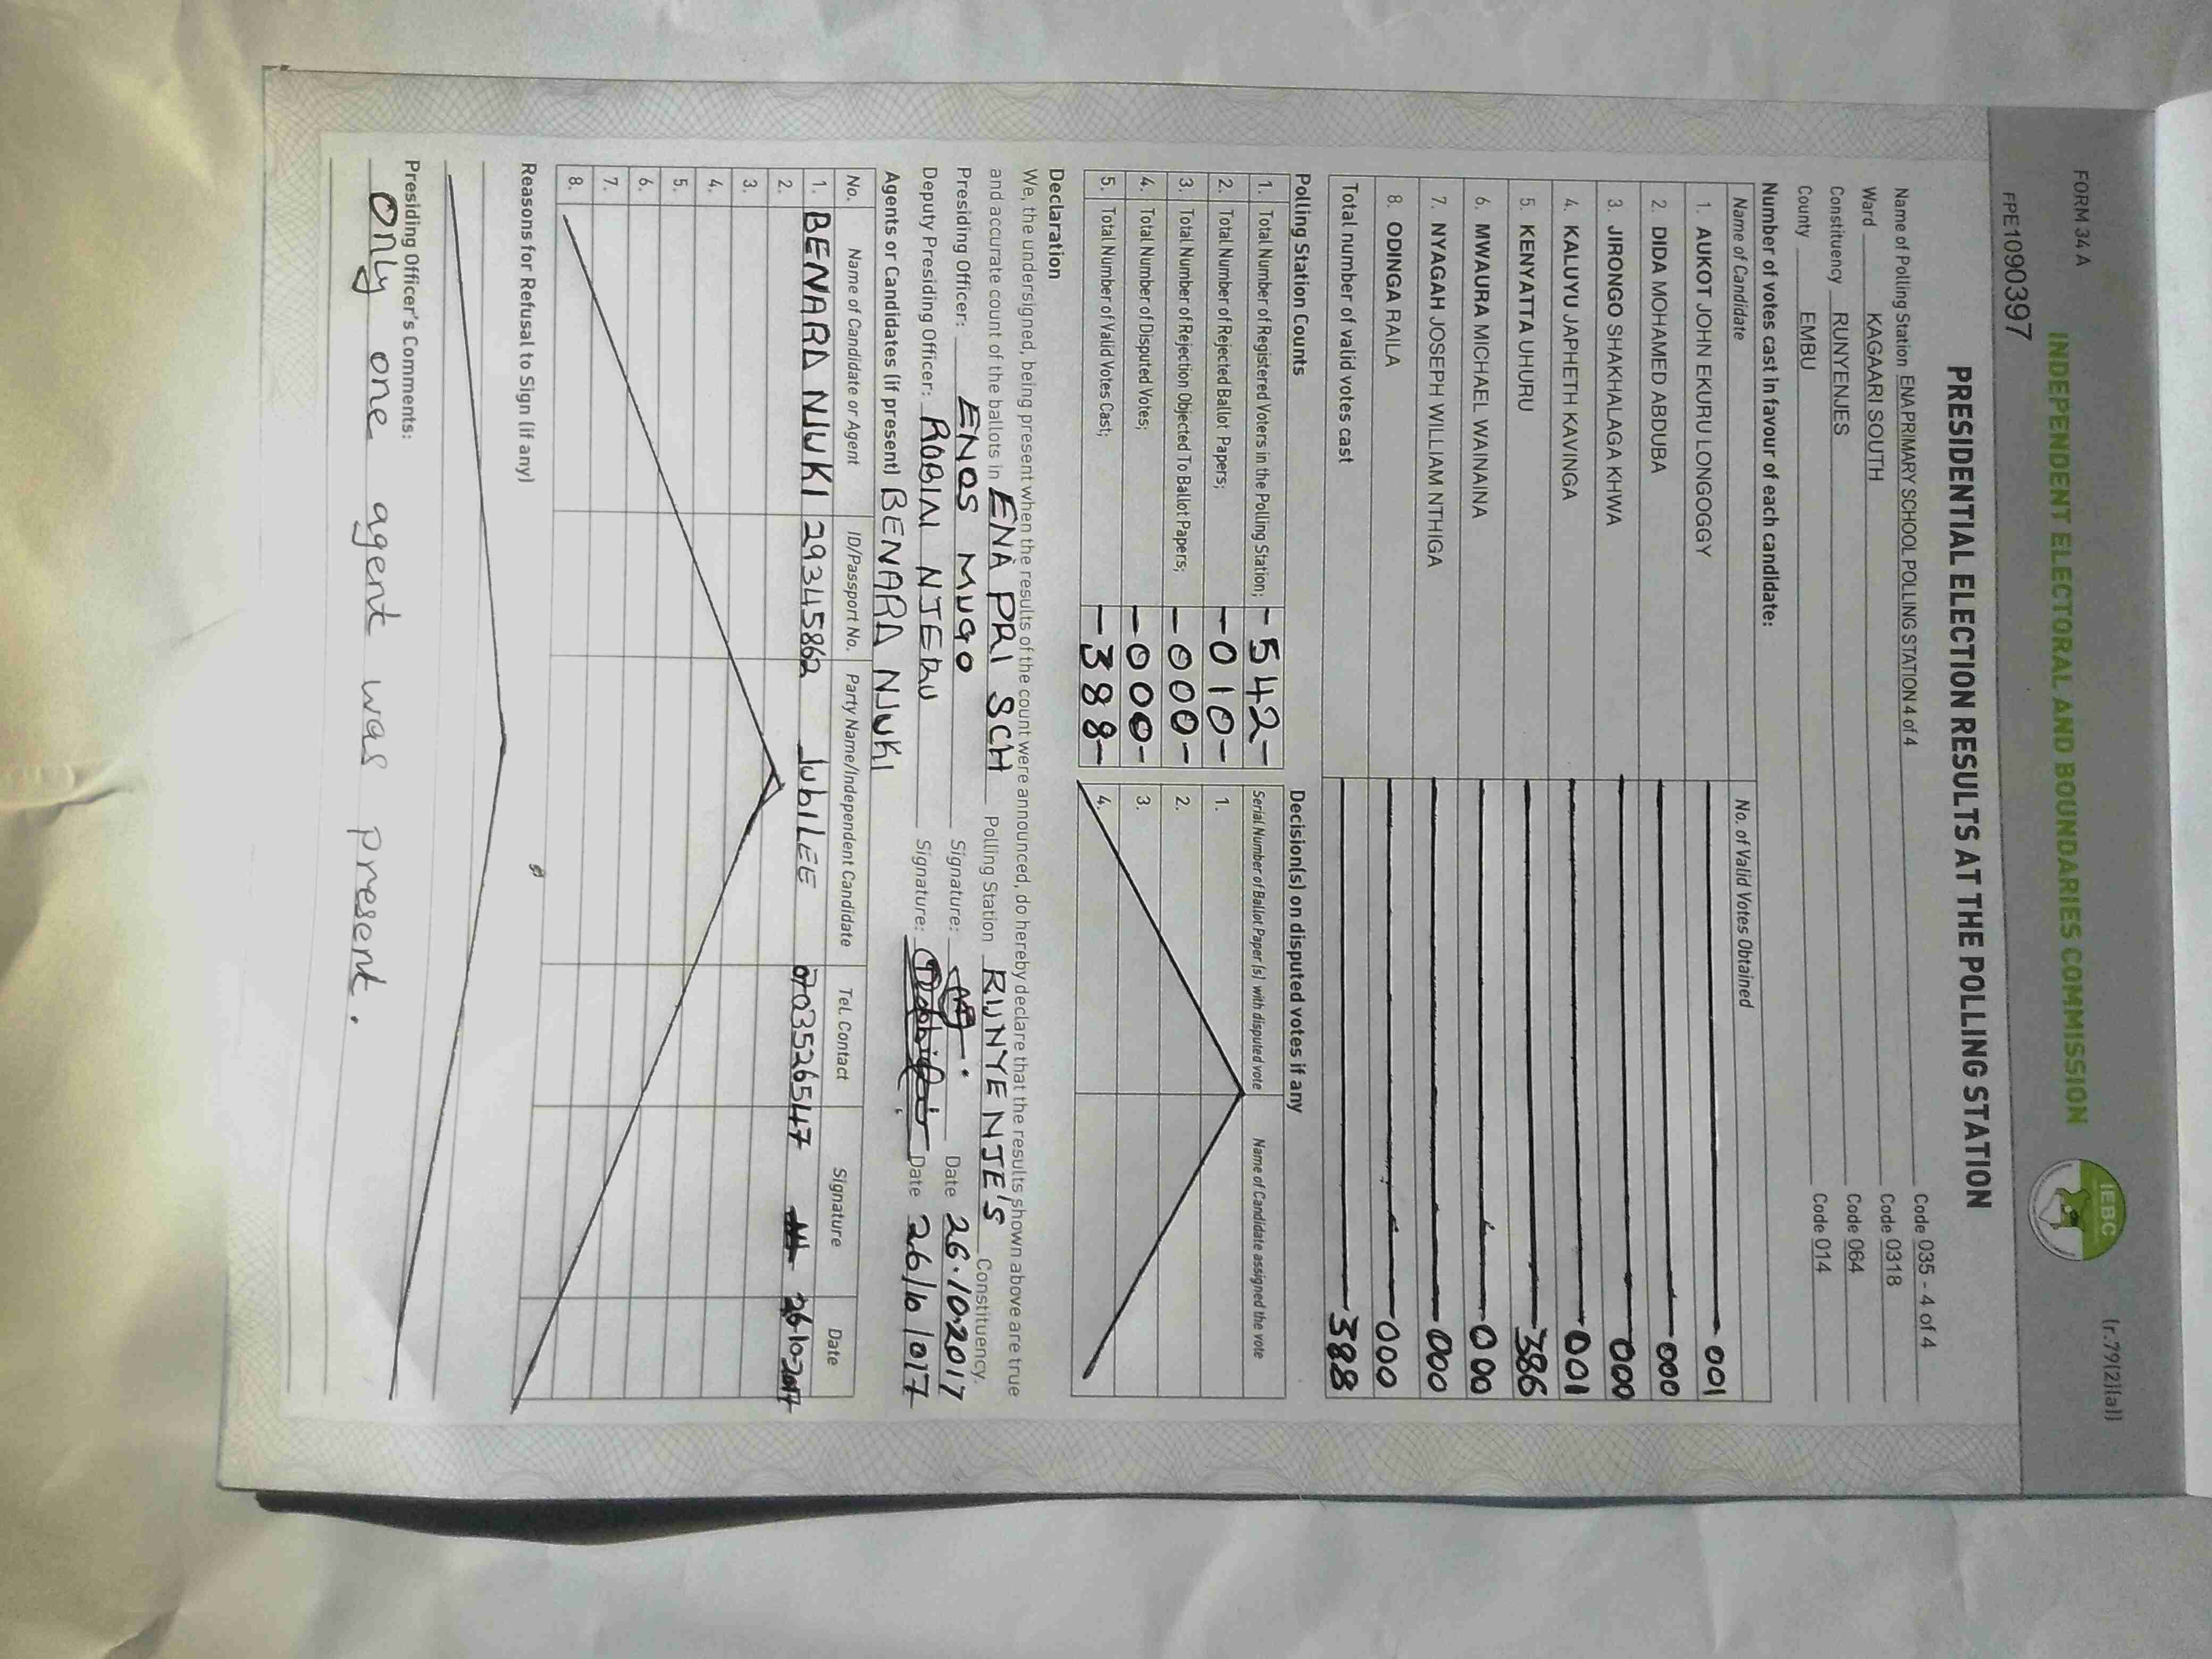 FORM 34 A
(r.79(2)(a))
INDEPENDENT ELECTORAL AND BOUNDARIES COMMISSION
IEBC
FPE1090397
PRESIDENTIAL ELECTION RESULTS AT THE POLLING STATION
Name of Polling Station ENA PRIMARY SCHOOL POLLING STATION 4 of 4 Code 035 - 4 of 4
Ward KAGAARI SOUTH Code 0318
Constituency RUNYENJES Code 064
County EMBU Code 014
Number of votes cast in favour of each candidate:
Name of Candidate No. of Valid Votes Obtained
1. AUKOT JOHN EKURU LONGOGGY 001
2. DIDA MOHAMED ABDUBA 000
3. JIRONGO SHAKHALAGA KHWA 000
4. KALUYU JAPHETH KAVINGA 001
5. KENYATTA UHURU 386
6. MWAURA MICHAEL WAINAINA 000
7. NYAGAH JOSEPH WILLIAM NTHIGA 000
8. ODINGA RAILA 000
Total number of valid votes cast 388
Polling Station Counts
1. Total Number of Registered Voters in the Polling Station; -542-
2. Total Number of Rejected Ballot Papers; -010-
3. Total Number of Rejection Objected To Ballot Papers; -000-
4. Total Number of Disputed Votes; -000-
5. Total Number of Valid Votes Cast; -388-
Decision(s) on disputed votes if any
Serial Number of Ballot Paper (s) with disputed vote Name of Candidate assigned the vote
1.
2.
3.
4.
Declaration
We, the undersigned, being present when the results of the count were announced, do hereby declare that the results shown above are true
and accurate count of the ballots in ENA PRI SCH Polling Station RUNYENJE'S Constituency.
Presiding Officer: ENOS MUGO Signature: Date 26.10.2017
Deputy Presiding Officer: ROBIN NJERU Signature: Date 26/10/017
Agents or Candidates (if present) BENARD NJUKI
No. Name of Candidate or Agent ID/Passport No. Party Name/Independent Candidate Tel. Contact Signature Date
1. BENARD NJUKI 29345862 JUBILEE 0703526547 26-10-2017
2.
3.
4.
5.
6.
7.
8.
Reasons for Refusal to Sign (if any)
Presiding Officer's Comments:
Only one agent was present.